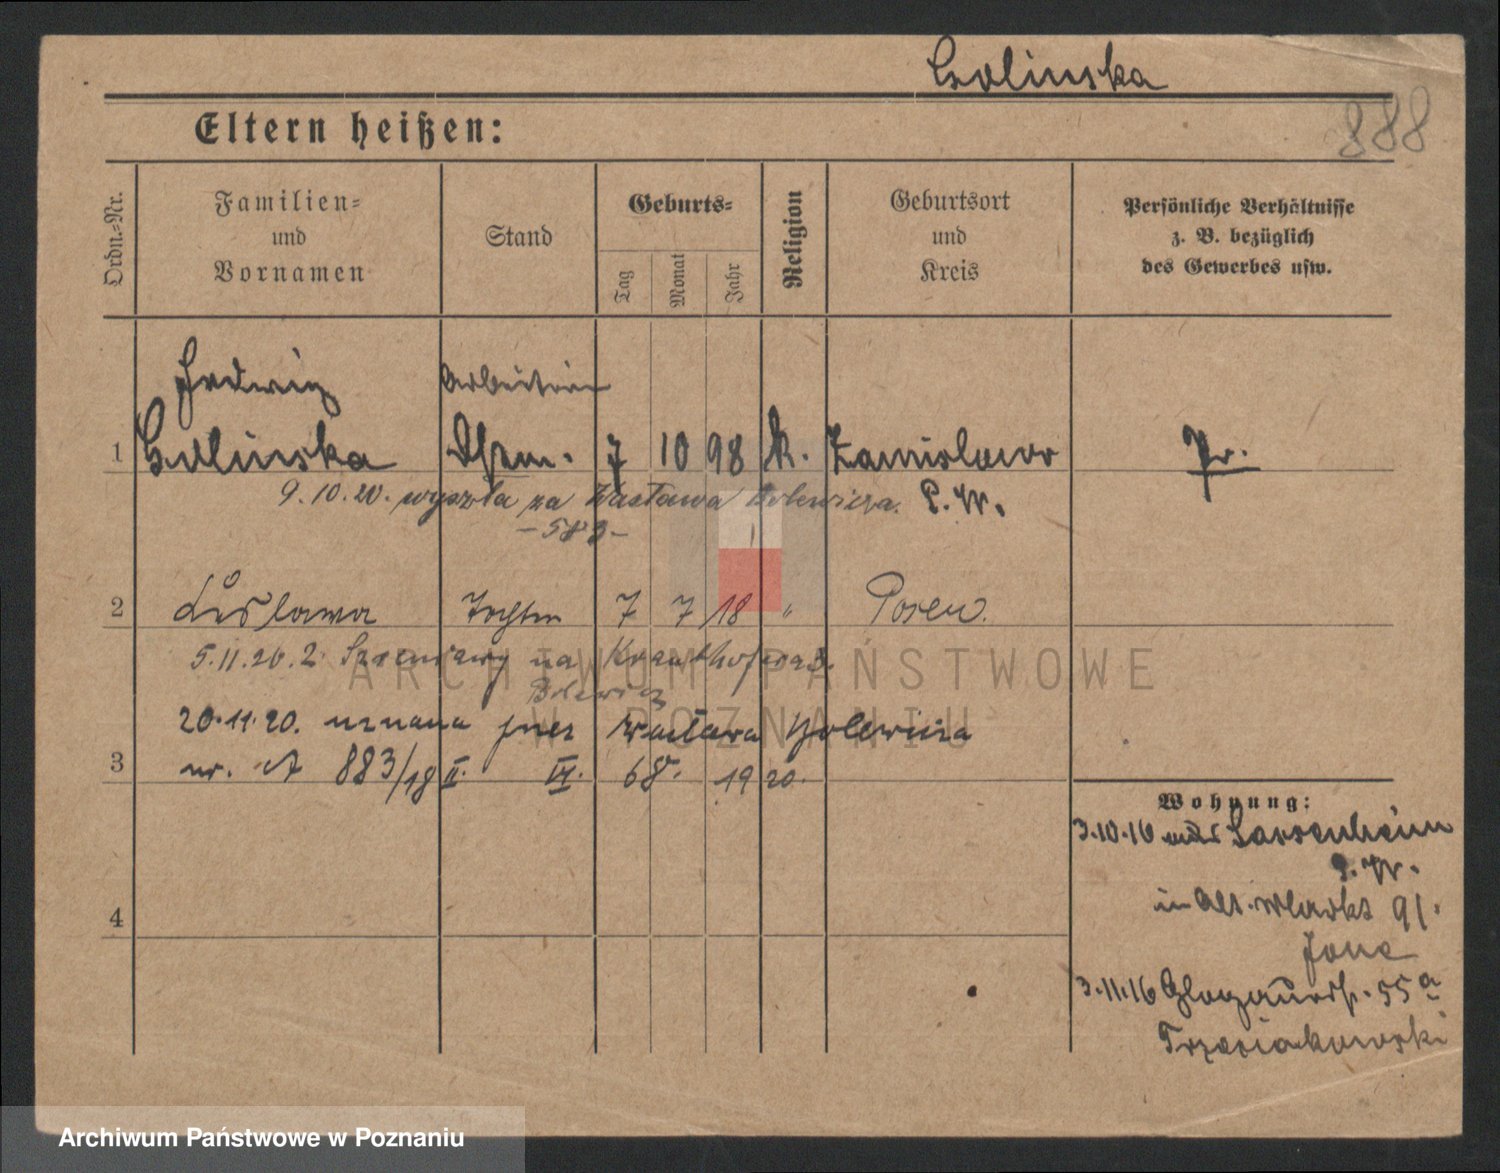 Golinska
888
Eltern heißen:
Ordn.-Nr.
Familien-
und
Vornamen
Stand
Geburts-
Tag
Monat
Jahr
Religion
Geburtsort
und
Kreis
Persönliche Verhältnisse
z. B. bezüglich
des Gewerbes usw.
Hedwig Arbeiterin
1 Golinska 7 10 98 k. Zanislawo Pr.
9.10.20. wyszła za Wacława Bolewicza. P. W.
-583-
2 Tochter 7 7 18 " Posen.
5.11.26. na
Bolewicz
20.11.20. uznana przez Wacława Bolewicza
3 nr. A 883/18 II. VI. 68. 1920.
4
Wohnung:
3.10.16 aus Sassenheim
P. W.
in Alt. Markt 91.
3.11.16 Glogauerstr. 55a
Trzesiakowski
ARCHIWUM PAŃSTWOWE
W POZNANIU
Archiwum Państwowe w Poznaniu